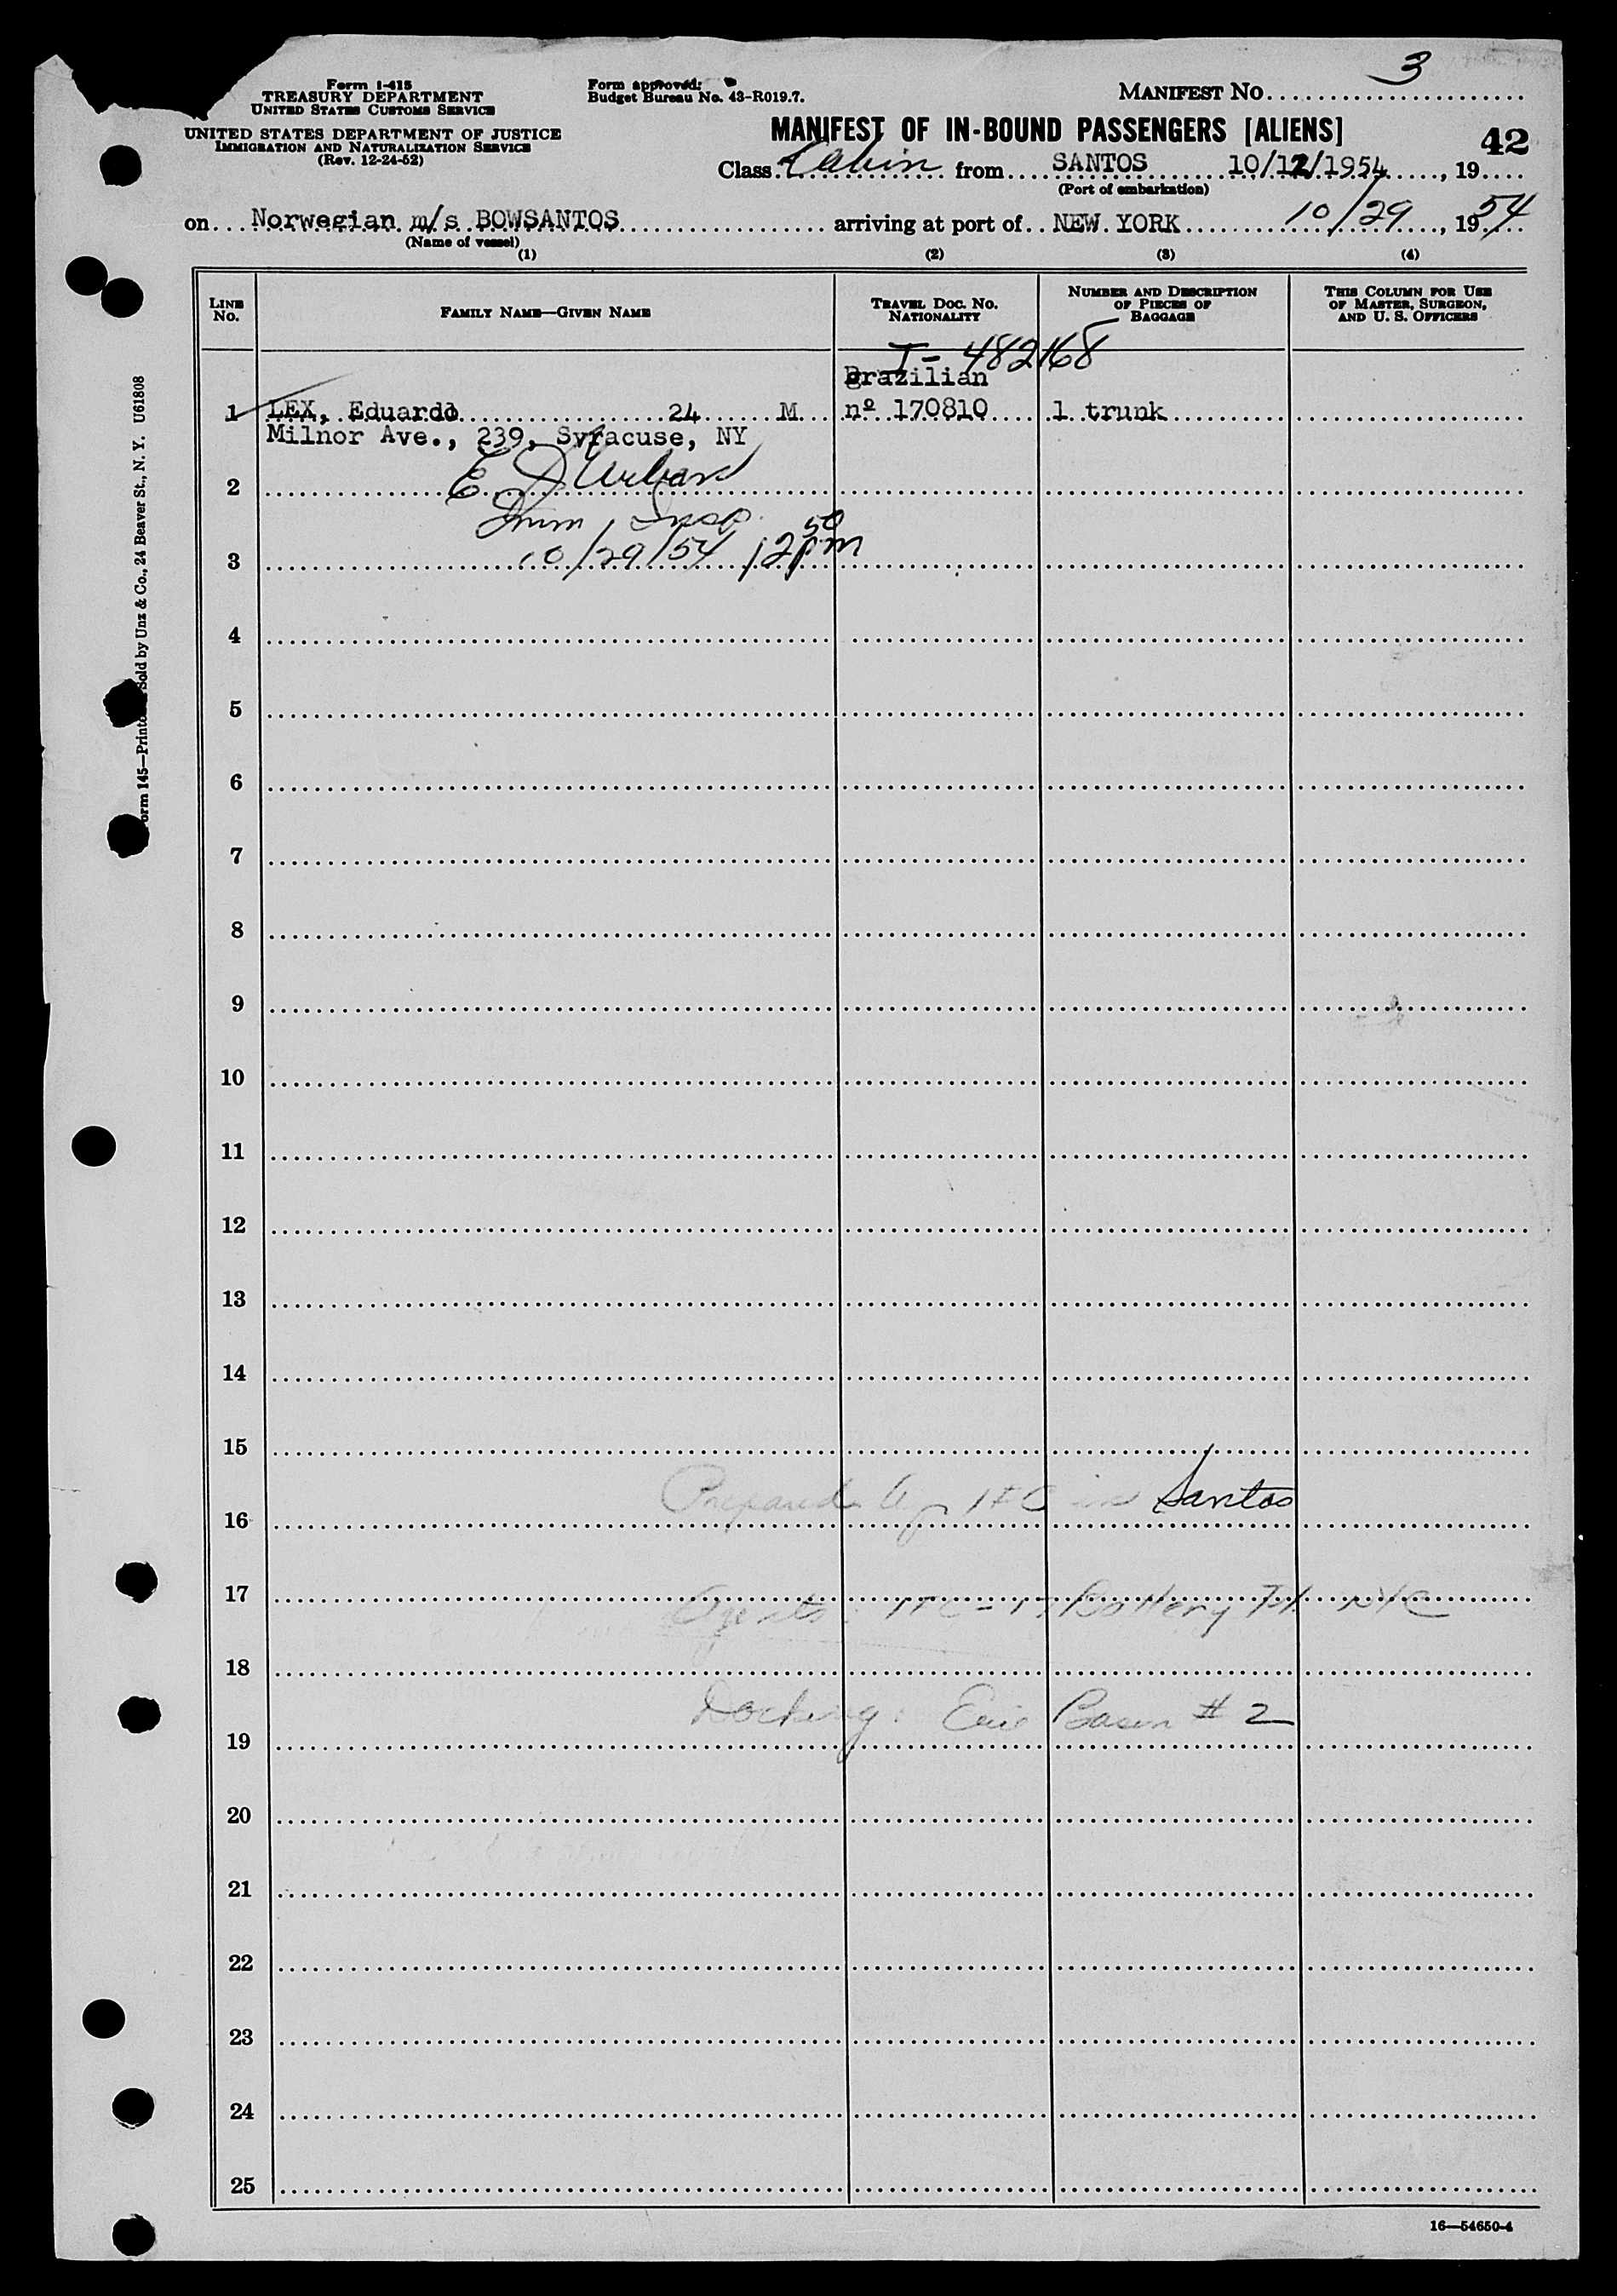 Form I-415
TREASURY DEPARTMENT
UNITED STATES CUSTOMS SERVICE
UNITED STATES DEPARTMENT OF JUSTICE
IMMIGRATION AND NATURALIZATION SERVICE
(Rev. 12-24-52)
Form approved:
Budget Bureau No. 43-R019.7.
MANIFEST NO. 3
MANIFEST OF IN-BOUND PASSENGERS [ALIENS]
42
Class Cabin from SANTOS 10/12/1954, 19
(Port of embarkation)
on Norwegian m/s BOWSANTOS arriving at port of NEW YORK 10/29, 1954
(Name of vessel)
(1) (2) (3) (4)
LINE NO. FAMILY NAME—GIVEN NAME TRAVEL DOC. NO. NATIONALITY NUMBER AND DESCRIPTION OF PIECES OF BAGGAGE THIS COLUMN FOR USE OF MASTER, SURGEON, AND U. S. OFFICERS
I- 482168
Brazilian
1 LEX, Eduardo 24 M nº 170810 1 trunk
Milnor Ave., 239, Syracuse, NY
2 E
Imm Insp.
3 10/29/54 12 50 pm
4
5
6
7
8
9
10
11
12
13
14
15
Prepared by IFC in Santos
16
17 Agents: IFC - 17 Battery Pl. NYC
18
Docking: Erie Basin # 2
19
20
21
22
23
24
25
16—54650-4
Form 145—Printed & Sold by Unz & Co., 24 Beaver St., N. Y. U61808